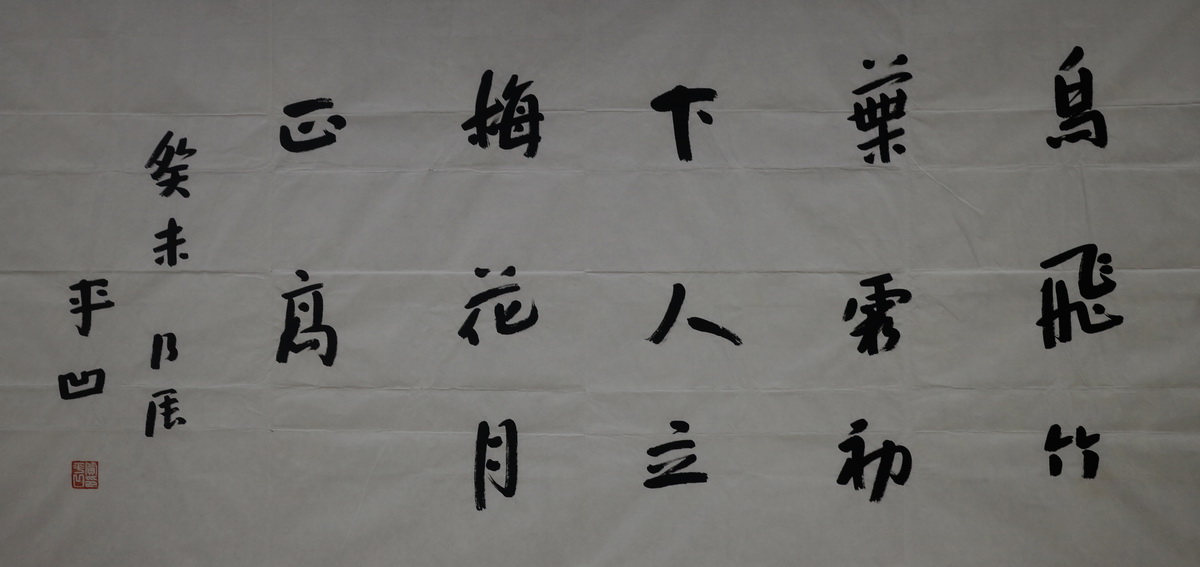 鳥飛竹
葉霜初
下人立
梅花月
正高
癸未
平凹